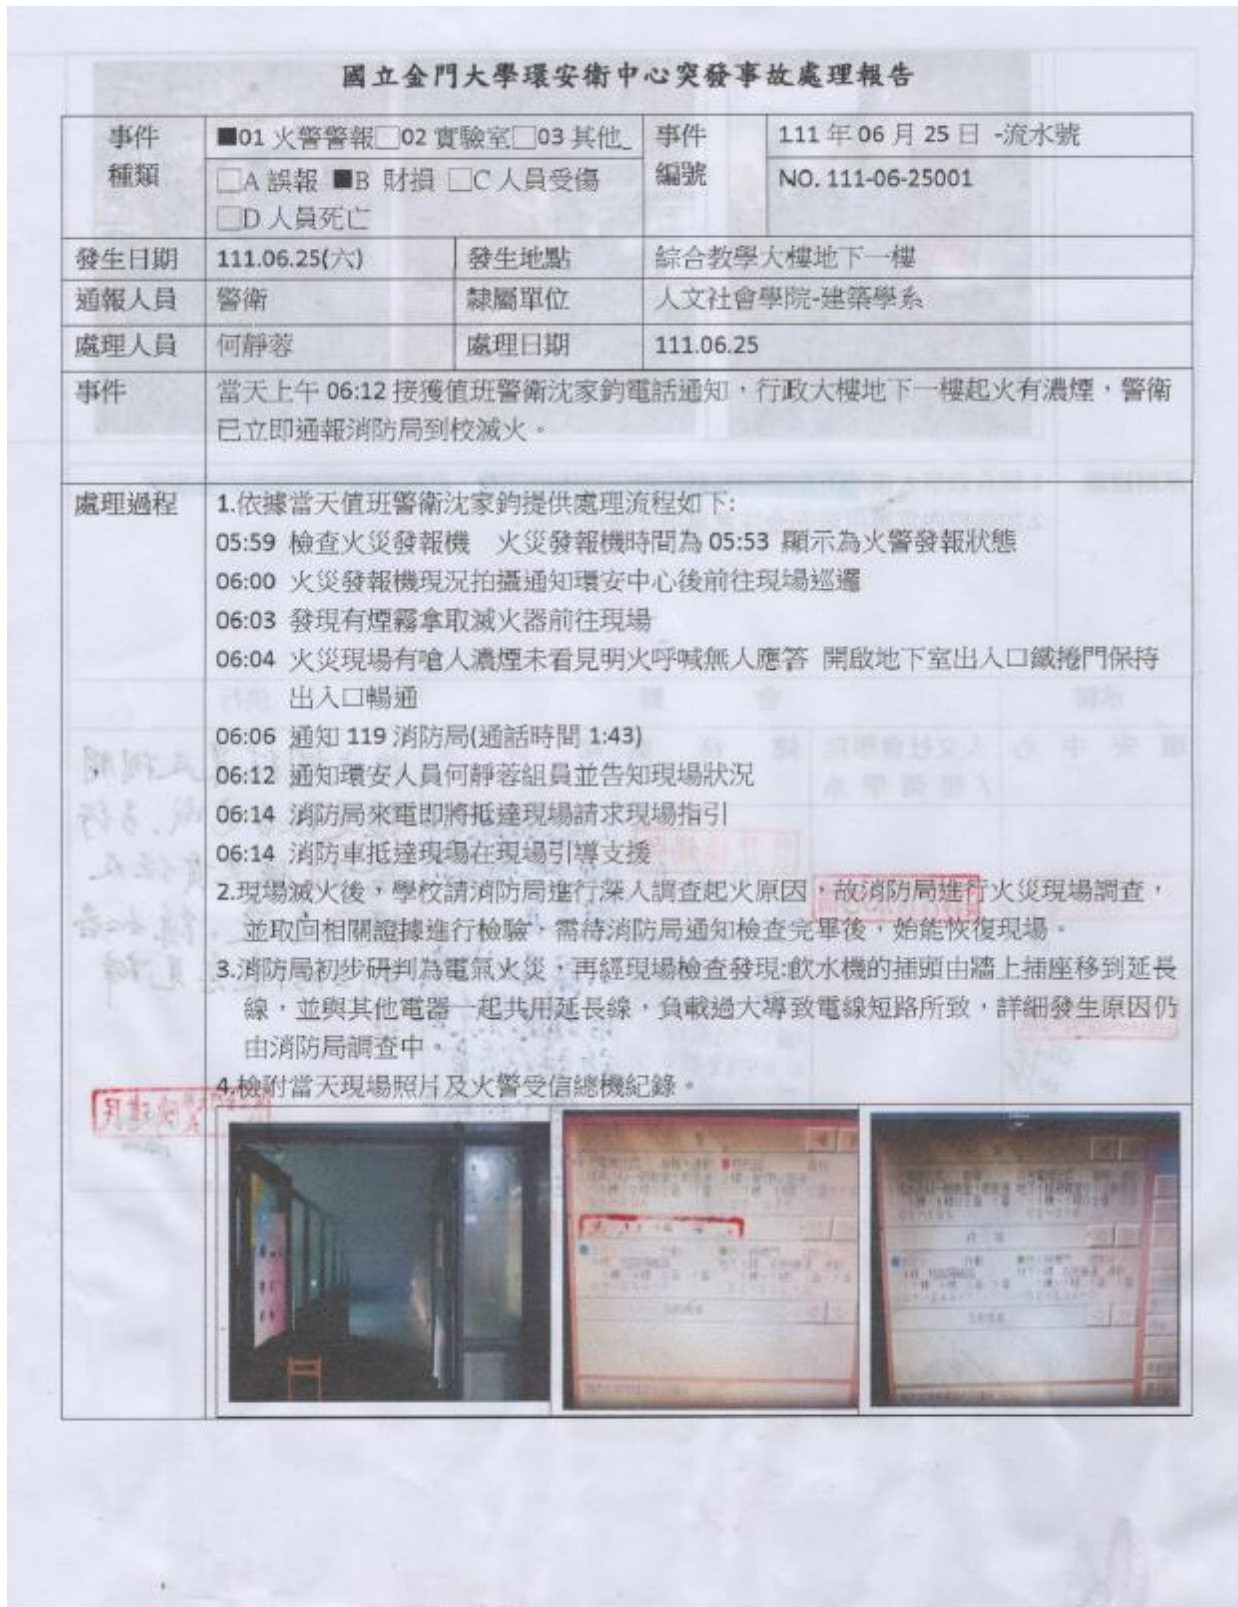 國立金門大學環安衛中心突發事故處理報告
事件種類
■01 火警警報□02 實驗室□03 其他_
事件編號
111 年 06 月 25 日 -流水號
□A 誤報 ■B 財損 □C 人員受傷
□D 人員死亡
NO. 111-06-25001
發生日期 111.06.25(六) 發生地點 綜合教學大樓地下一樓
通報人員 警衛 隸屬單位 人文社會學院-建築學系
處理人員 何靜蓉 處理日期 111.06.25
事件 當天上午 06:12 接獲值班警衛沈家鈞電話通知，行政大樓地下一樓起火有濃煙，警衛
已立即通報消防局到校滅火。
處理過程 1.依據當天值班警衛沈家鈞提供處理流程如下:
05:59 檢查火災發報機 火災發報機時間為 05:53 顯示為火警發報狀態
06:00 火災發報機現況拍攝通知環安中心後前往現場巡邏
06:03 發現有煙霧拿取滅火器前往現場
06:04 火災現場有嗆人濃煙未看見明火呼喊無人應答 開啟地下室出入口鐵捲門保持
出入口暢通
06:06 通知 119 消防局(通話時間 1:43)
06:12 通知環安人員何靜蓉組員並告知現場狀況
06:14 消防局來電即將抵達現場請求現場指引
06:14 消防車抵達現場在現場引導支援
2.現場滅火後，學校請消防局進行深入調查起火原因，故消防局進行火災現場調查，
並取回相關證據進行檢驗，需待消防局通知檢查完畢後，始能恢復現場。
3.消防局初步研判為電氣火災，再經現場檢查發現:飲水機的插頭由牆上插座移到延長
線，並與其他電器一起共用延長線，負載過大導致電線短路所致，詳細發生原因仍
由消防局調查中。
4.檢附當天現場照片及火警受信總機紀錄。